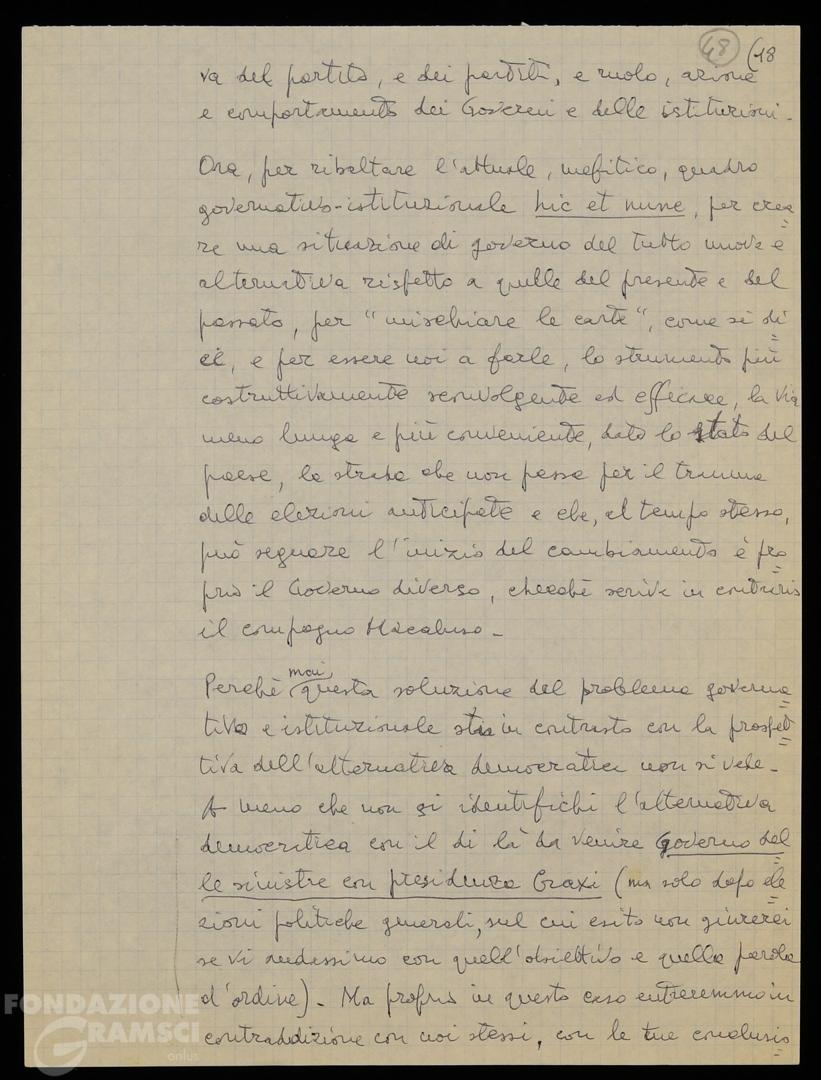 48 (18
va del partito, e dei partiti, e ruolo, azione
e comportamento dei Governi e delle istituzioni.
Ora, per ribaltare l'attuale, mefitico, quadro
governativo-istituzionale hic et nunc, per crea=
re una situazione di governo del tutto nuova e
alternativa rispetto a quelle del presente e del
passato, per "mischiare le carte", come si di=
ce, e per essere noi a farle, lo strumento più
costruttivamente sconvolgente ed efficace, la via
meno lunga e più conveniente, dato lo stato del
paese, la strada che non passa per il trauma
delle elezioni anticipate e che, al tempo stesso,
può segnare l'inizio del cambiamento è pro=
prio il Governo diverso, checché scriva in contrario
il compagno Macaluso.
Perché mai questa soluzione del problema governa=
tivo e istituzionale stia in contrasto con la prospet=
tiva dell'alternativa democratica non si vede.
A meno che non si identifichi l'alternativa
democratica con il di là da venire governo del=
le sinistre con presidenza Craxi (ma solo dopo ele=
zioni politiche generali, sul cui esito non giurerei
se vi andassimo con quell'obiettivo e quella parola
d'ordine). Ma proprio in questo caso entreremmo in
contraddizione con noi stessi, con le tue conclusio=
FONDAZIONE
GRAMSCI
onlus